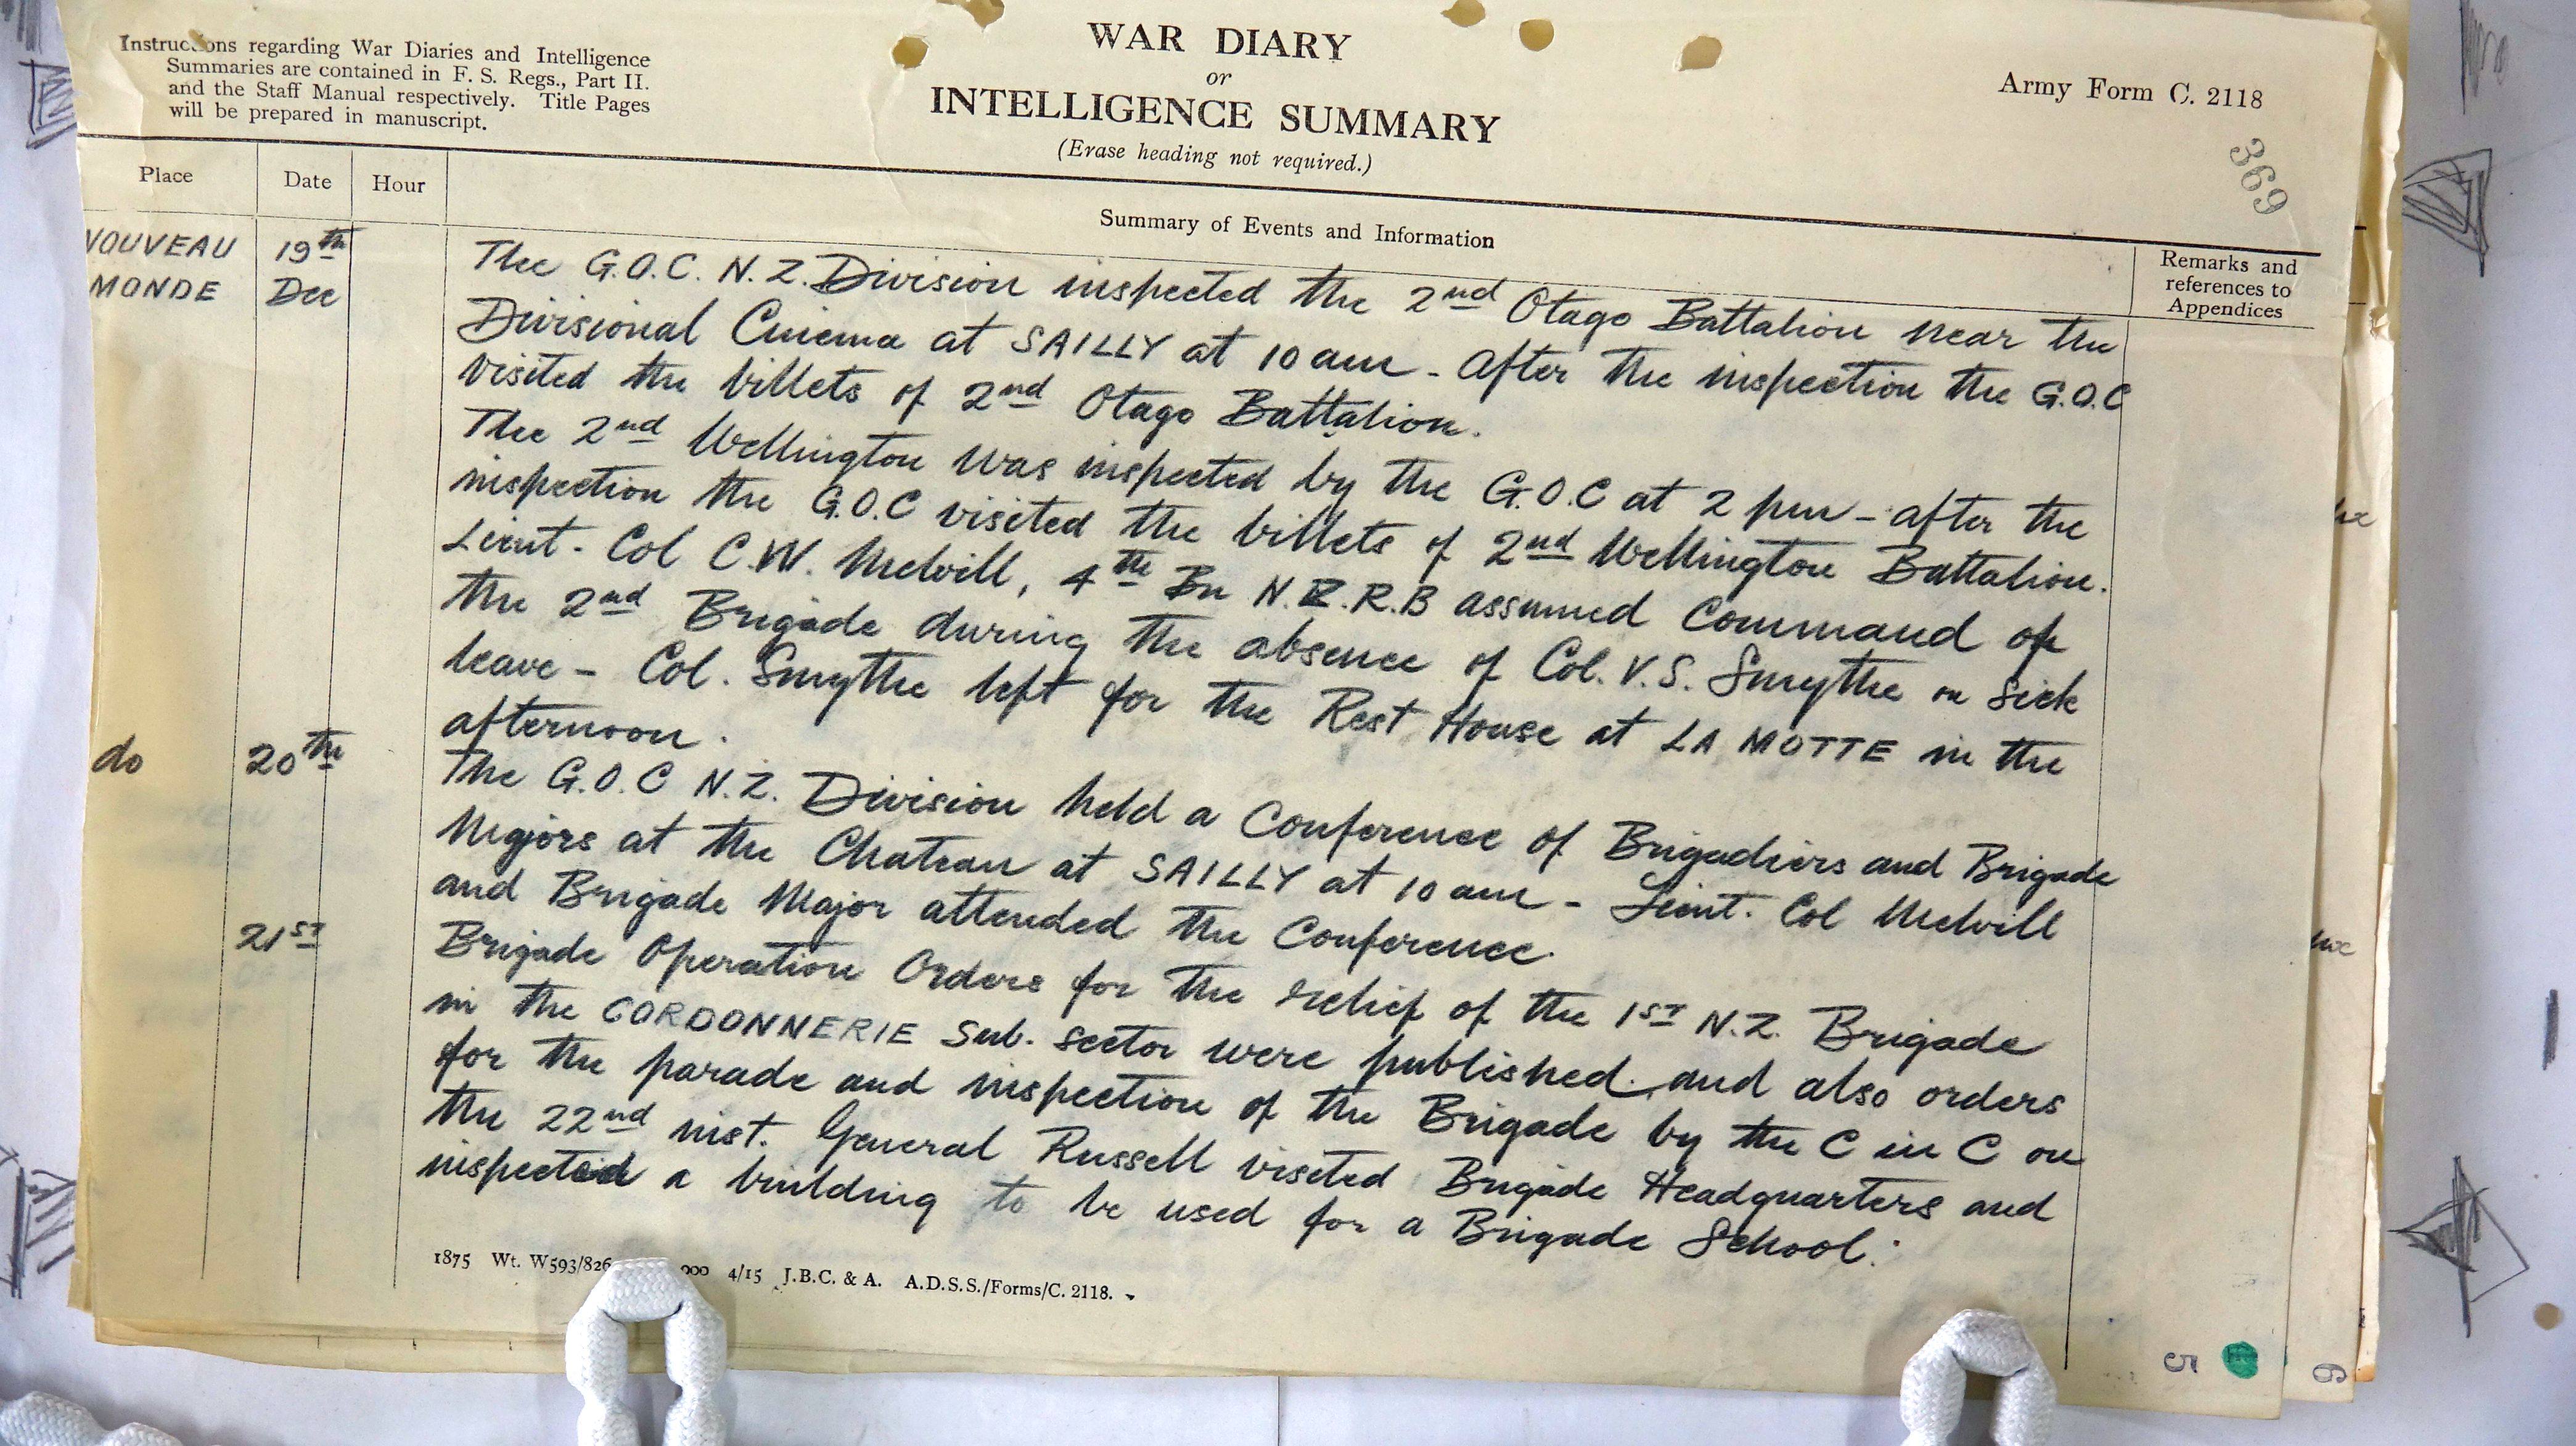 Instructions regarding War Diaries and Intelligence
Summaries are contained in F. S. Regs., Part II.
and the Staff Manual respectively. Title Pages
will be prepared in manuscript.
WAR DIARY
or
INTELLIGENCE SUMMARY
(Erase heading not required.)
Army Form C. 2118
369
Place Date Hour
Summary of Events and Information
Remarks and
references to
Appendices
NOUVEAU MONDE
19th Dec
The G.O.C. N.Z. Division inspected the 2nd Otago Battalion near the
Divisional Cinema at SAILLY at 10 am - After the inspection the G.O.C
visited the billets of 2nd Otago Battalion.
The 2nd Wellington was inspected by the G.O.C at 2 pm - after the
inspection the G.O.C visited the billets of 2nd Wellington Battalion.
Lieut. Col C.W. Melvill, 4th Bn N.Z.R.B assumed command of
the 2nd Brigade during the absence of Col. V.S. Smythe on sick
leave - Col. Smythe left for the Rest House at LA MOTTE in the
afternoon.
do 20th
The G.O.C N.Z. Division held a Conference of Brigadiers and Brigade
Majors at the Chateau at SAILLY at 10 am - Lieut. Col Melvill
and Brigade Major attended the Conference.
21ST
Brigade Operation Orders for the relief of the 1ST N.Z. Brigade
in the CORDONNERIE Sub. sector were published. and also orders
for the parade and inspection of the Brigade by the C in C on
the 22nd inst. General Russell visited Brigade Headquarters and
inspected a building to be used for a Brigade School.
1875 Wt. W593/826 000 4/15 J.B.C. & A. A.D.S.S./Forms/C. 2118.
5
6